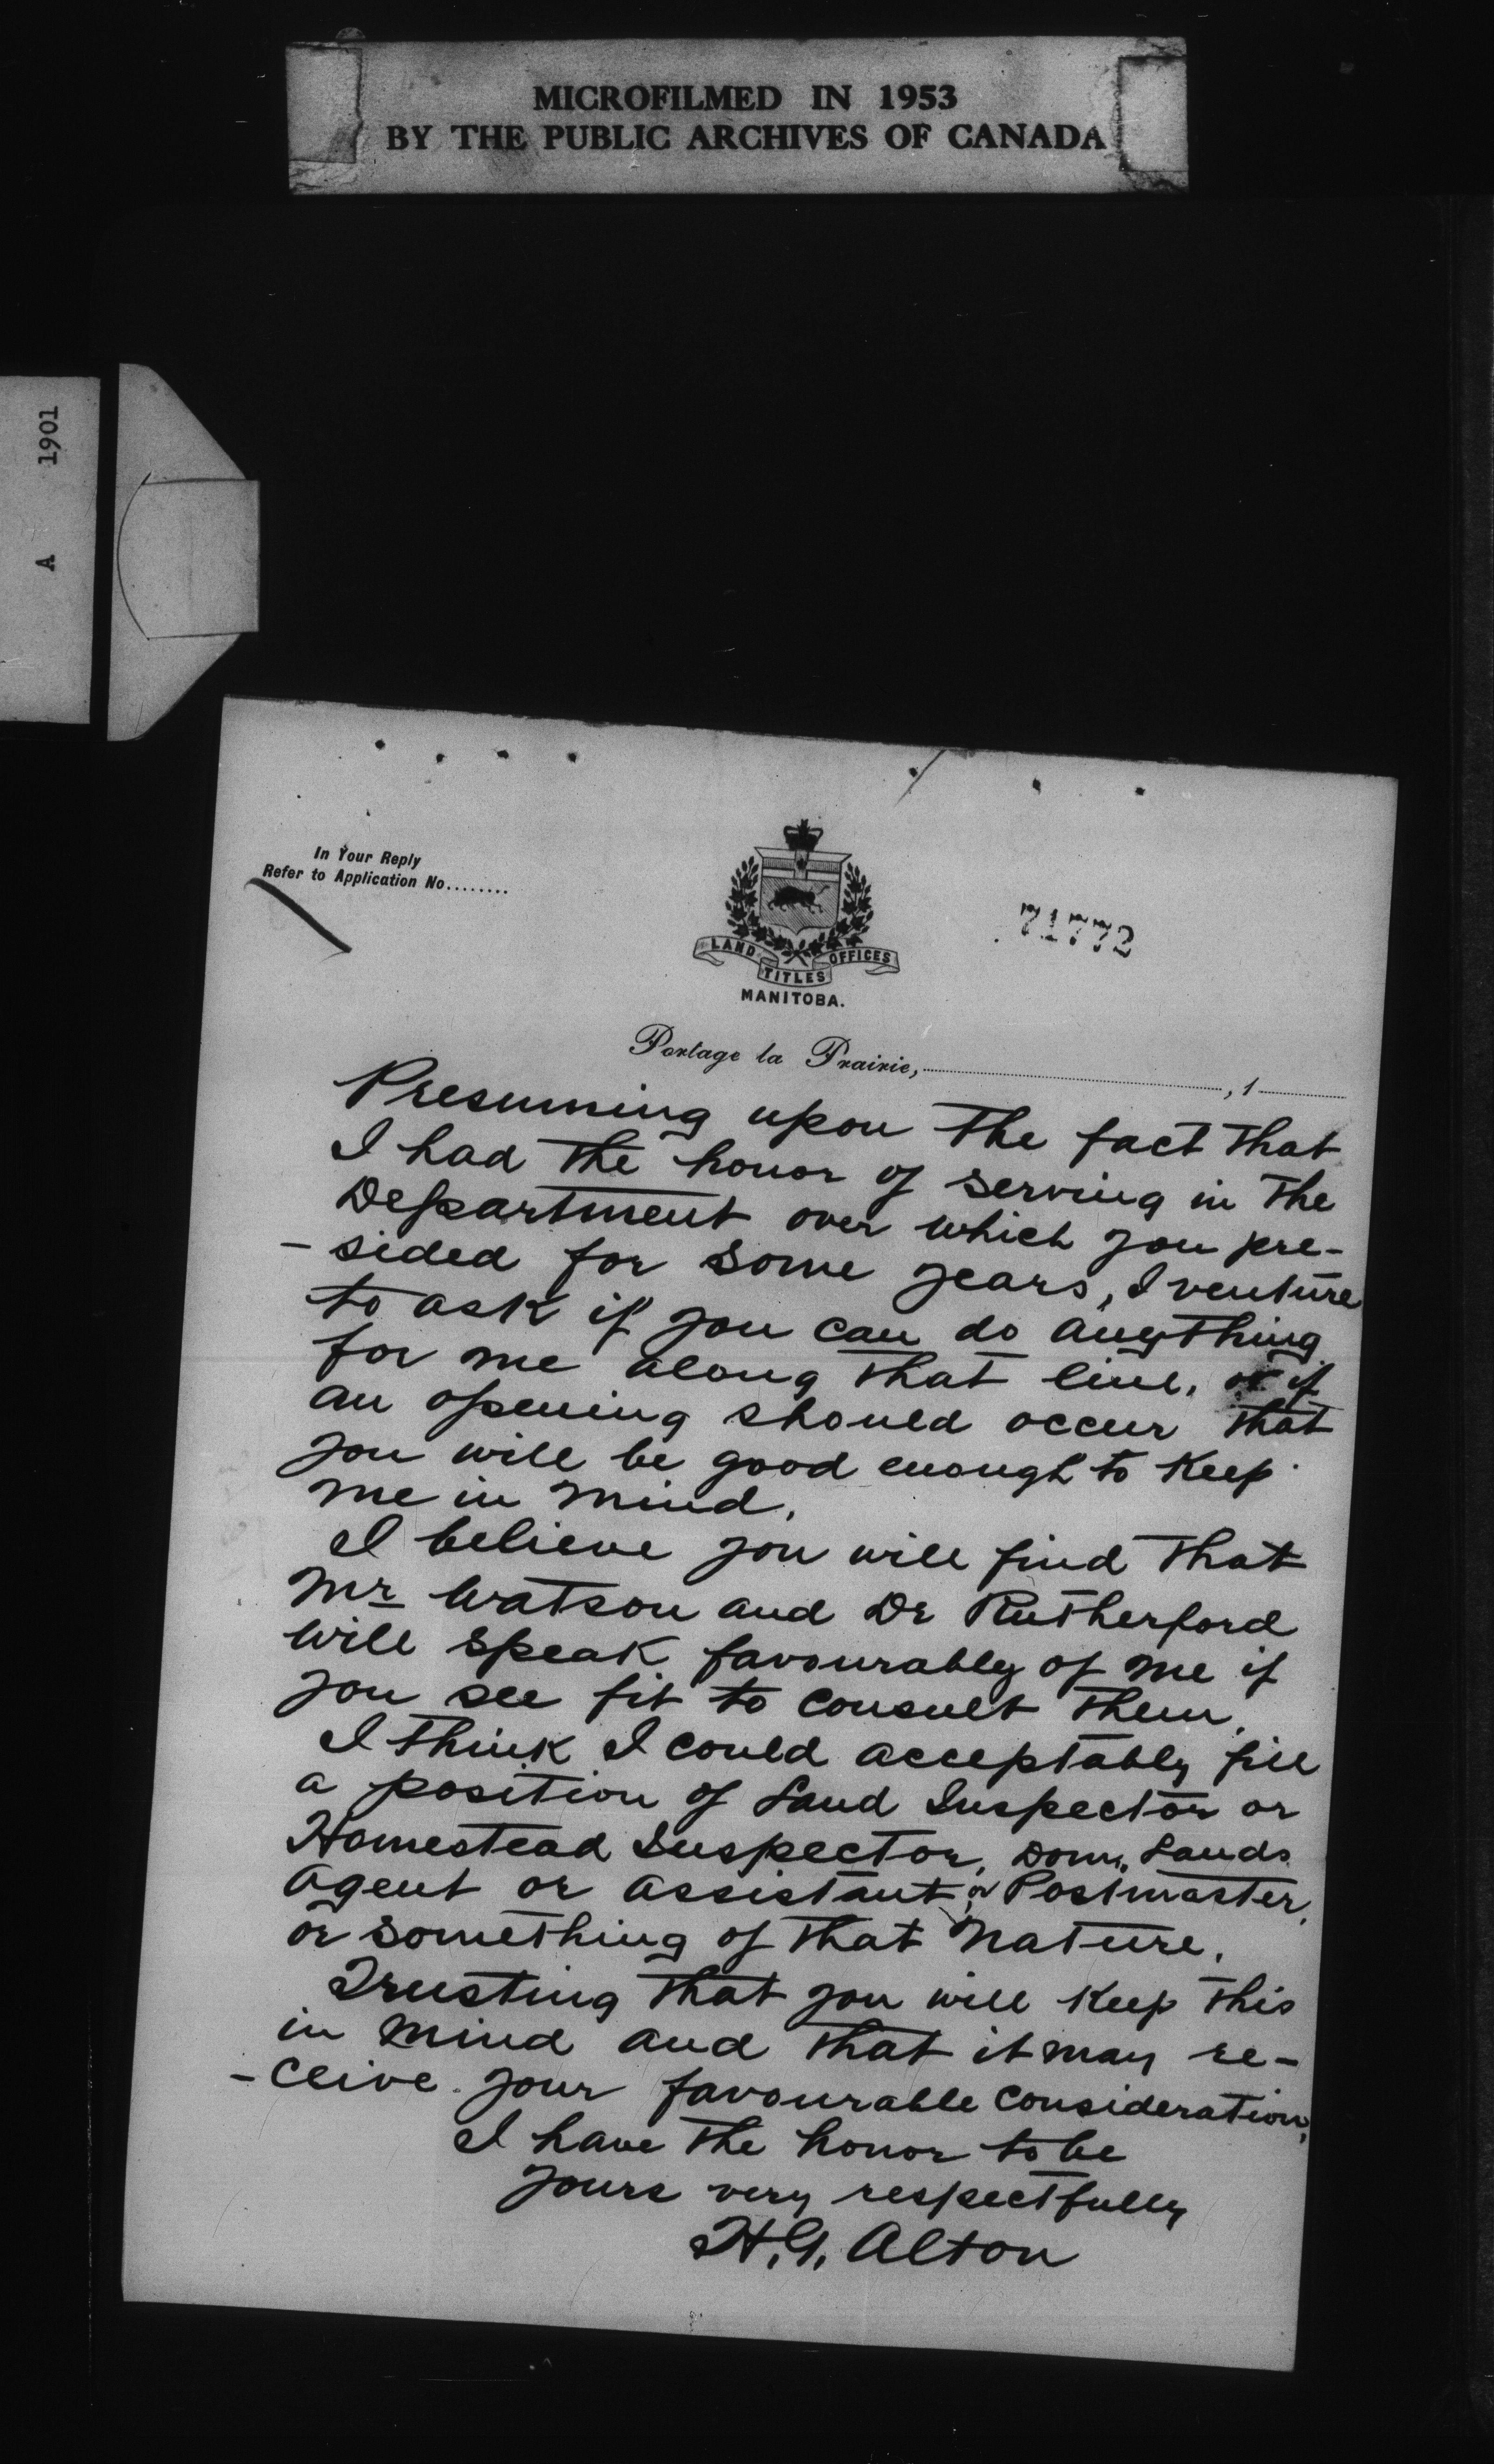 MICROFILMED IN 1953
BY THE PUBLIC ARCHIVES OF CANADA
A 1901
In Your Reply
Refer to Application No........
71772
LAND TITLES OFFICES
MANITOBA.
Portage la Prairie, , 1
Presuming upon the fact that
I had the honor of serving in the
Department over which you pre-
-sided for some years, I venture
to ask if you can do anything
for me along that line, or if
an opening should occur that
you will be good enough to keep
me in mind.
I believe you will find that
Mr Watson and Dr Rutherford
will speak favourably of me if
you see fit to consult them.
I think I could acceptably fill
a position of Land Inspector or
Homestead Inspector, Domn. Lands
Agent or assistant, or Postmaster,
or something of that nature.
Trusting that you will keep this
in mind and that it may re-
-ceive your favourable consideration,
I have the honor to be
yours very respectfully
H.G. Alton